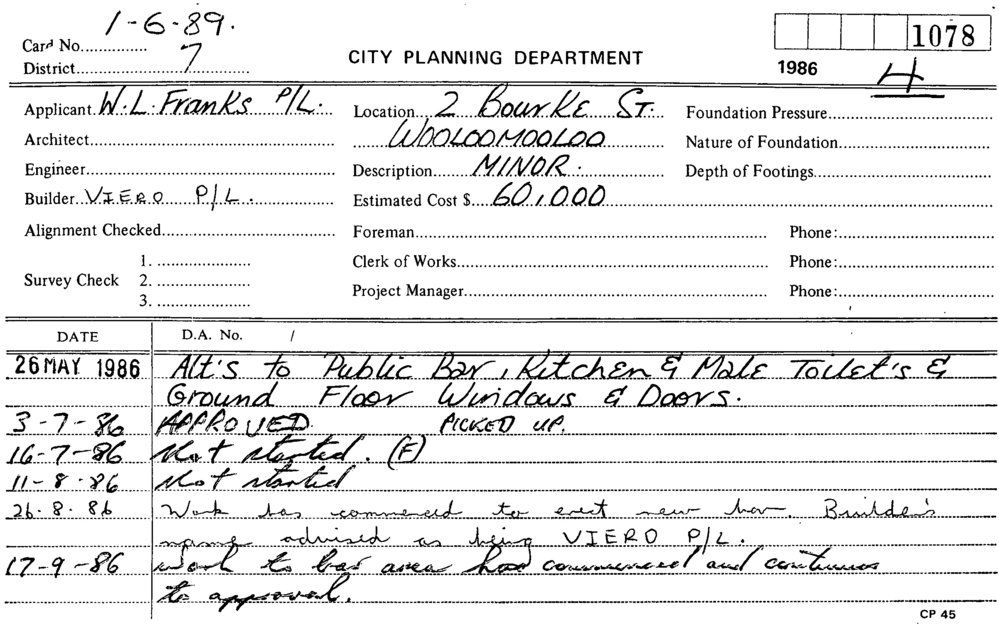 1-6-89.
Card No...............
District 7
CITY PLANNING DEPARTMENT
1078
1986
4
Applicant W.L. Franks P/L. Location 2 BOURKE ST. Foundation Pressure
Architect WOOLOOMOOLOO Nature of Foundation
Engineer Description MINOR. Depth of Footings
Builder VIERO P/L. Estimated Cost $ 60,000
Alignment Checked Foreman Phone:
1. Clerk of Works Phone:
Survey Check 2.
3. Project Manager Phone:
DATE D.A. No. /
26 MAY 1986 Alt's to Public Bar, Kitchen & Male Toilet's &
Ground Floor Windows & Doors.
3-7-86 APPROVED. PICKED UP.
16-7-86 Not started. (F)
11-8-86 Not started
26.8.86 Work has commenced to erect new bar. Builder's
name advised as being VIERO P/L.
17-9-86 Work to bar area has commenced and continues
to approval.
CP 45